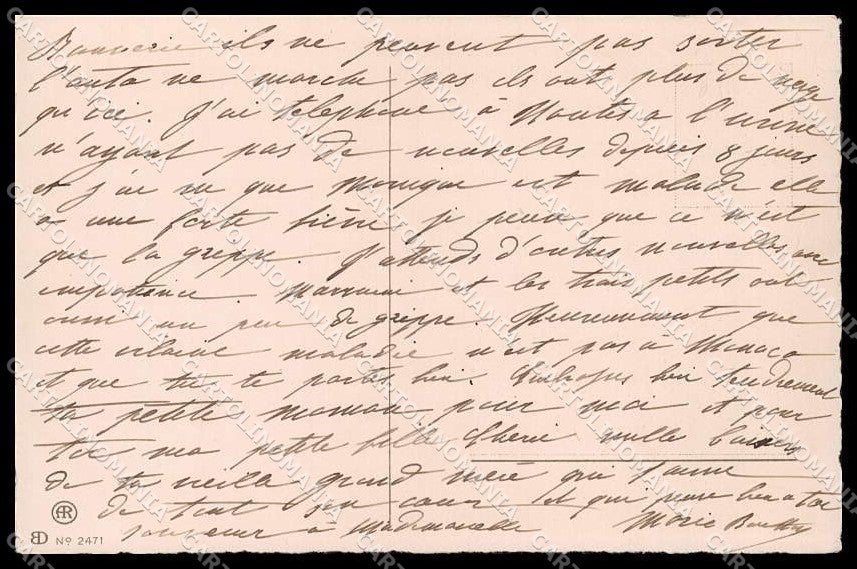 ils ne peuvent pas sortir
l'auto ne marche pas ils ont plus de neige
qu'ici. J'ai téléphoné à Nantes a l'usine
n'ayant pas de nouvelles depuis 8 jours
et j'ai vu que Monique est malade elle
a une forte fièvre je pense que ce n'est
que la grippe. J'attends d'autres nouvelles avec
impatience. Marraine et les trois petits ont
aussi un peu de grippe. Heureusement que
cette vilaine maladie n'est pas à Monaco
et que tu te portes bien. Embrasse bien tendrement
ta petite maman pour moi et pour
toi ma petite fille chérie mille baisers
de ta vieille grand mère qui t'aime
de tout son cœur et qui pense bien a toi
souvenir à Mademoiselle Marie
AR
BD No 2471
CARTOLINOMANIA